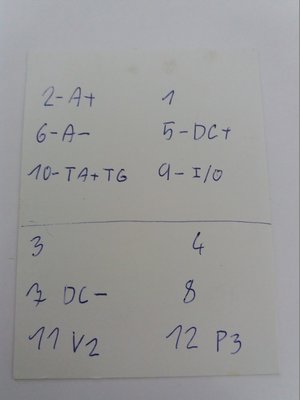 2-A+ 1
6-A- 5-DC+
10-TA+TG 9-I/O
3 4
7 DC- 8
11 V2 12 P3